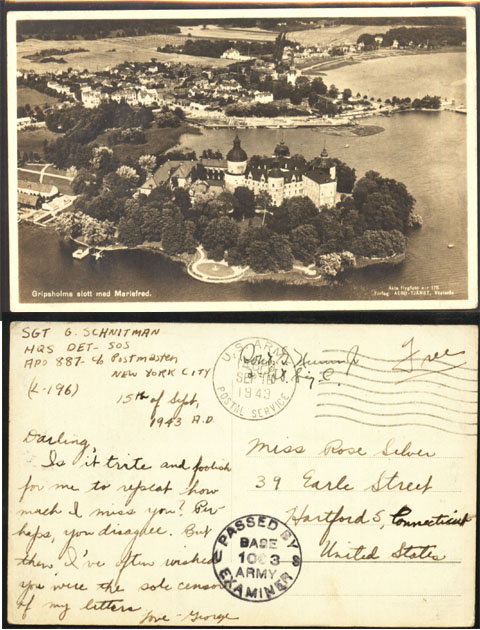 Gripsholms slott med Mariefred.
SGT G. SCHNITMAN
HQS DET- SOS
APO 887- c/o Postmaster
NEW YORK CITY
(L-196)
15th of Sept,
1943 A.D.
Darling,
Is it trite and foolish
for me to repeat how
much I miss you? Per-
haps, you disagree. But
then I've often wished
you were the sole censor
of my letters
Love - George
U.S. ARMY
SEP 16
1943
POSTAL SERVICE
Free
Miss Rose Silver
39 Earle Street
Hartford 5, Connecticut
United States
PASSED BY
BASE
1003
ARMY
EXAMINER